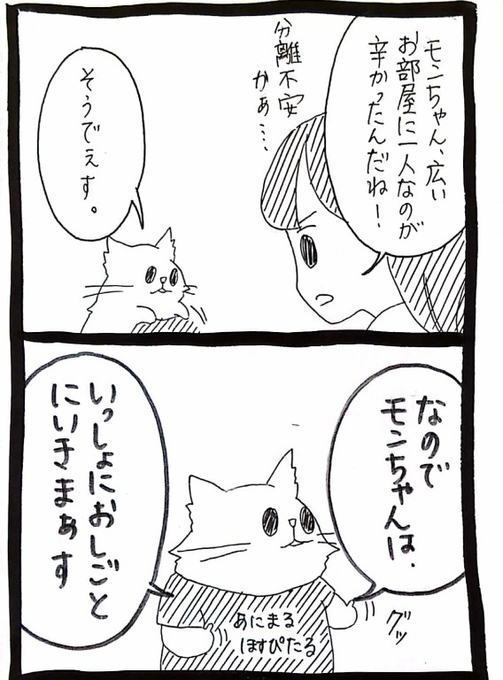 モンちゃん、広い
お部屋に一人なのが
辛かったんだねー！
分離不安
かぁ…、
そうでぇす。
なので
モンちゃんは、
いっしょにおしごと
にいきまぁす
あにまる
ほすぴたる
グッ